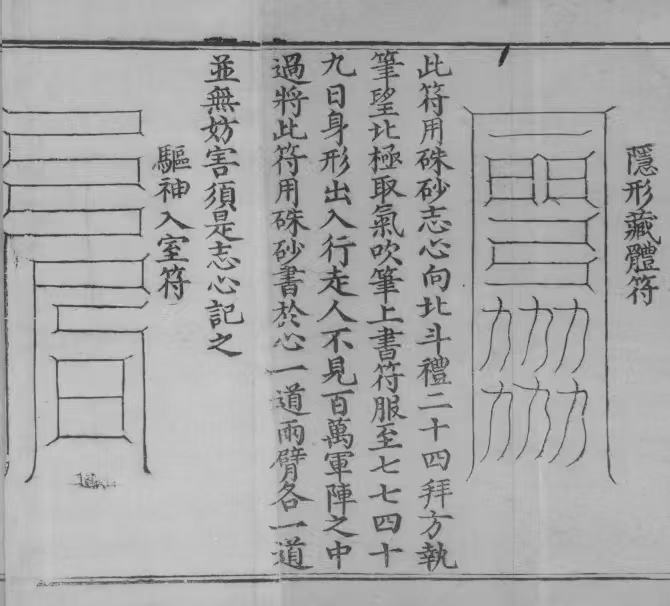 隱形藏體符
此符用硃砂志心向北斗禮二十四拜方執
筆望北極取氣吹筆上書符服至七七四十
九日身形出入行走人不見百萬軍陣之中
過將此符用硃砂書於心一道兩臂各一道
並無妨害須是志心記之
驅神入室符